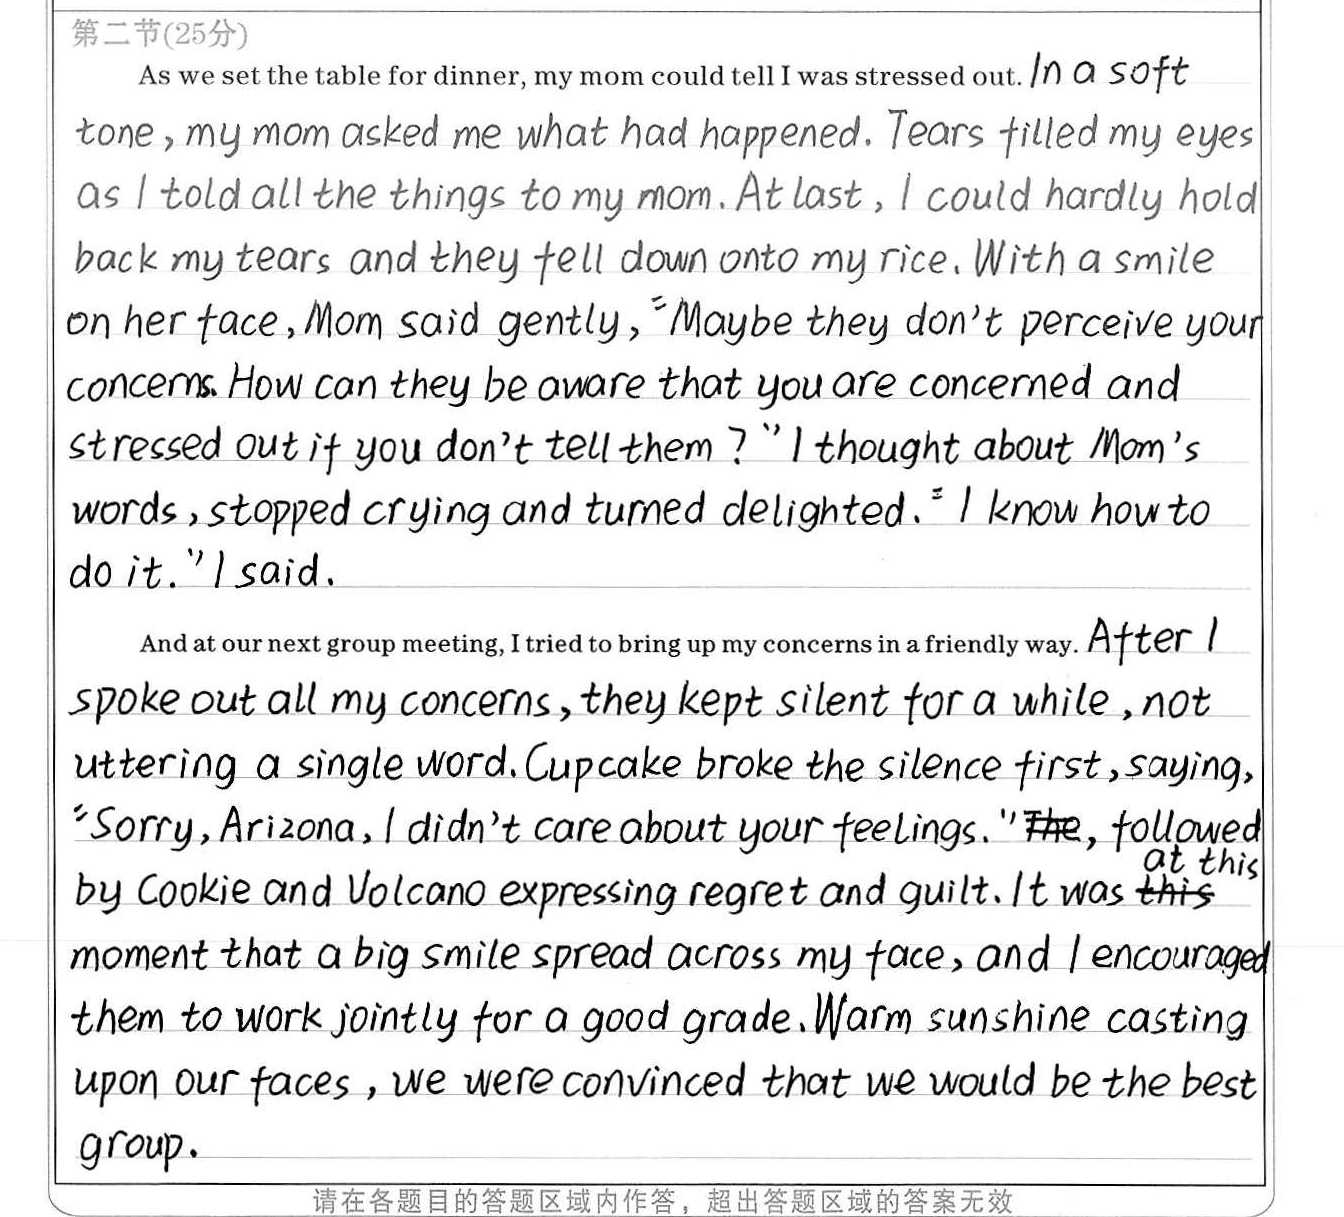 第二节(25分)
As we set the table for dinner, my mom could tell I was stressed out. In a soft
tone, my mom asked me what had happened. Tears filled my eyes
as I told all the things to my mom. At last, I could hardly hold
back my tears and they fell down onto my rice. With a smile
on her face, Mom said gently, "Maybe they don't perceive your
concerns. How can they be aware that you are concerned and
stressed out if you don't tell them?" I thought about Mom's
words, stopped crying and turned delighted. "I know how to
do it." I said.
And at our next group meeting, I tried to bring up my concerns in a friendly way. After I
spoke out all my concerns, they kept silent for a while, not
uttering a single word. Cupcake broke the silence first, saying,
"Sorry, Arizona, I didn't care about your feelings." The, followed
by Cookie and Volcano expressing regret and guilt. It was this at this
moment that a big smile spread across my face, and I encouraged
them to work jointly for a good grade. Warm sunshine casting
upon our faces, we were convinced that we would be the best
group.
请在各题目的答题区域内作答，超出答题区域的答案无效